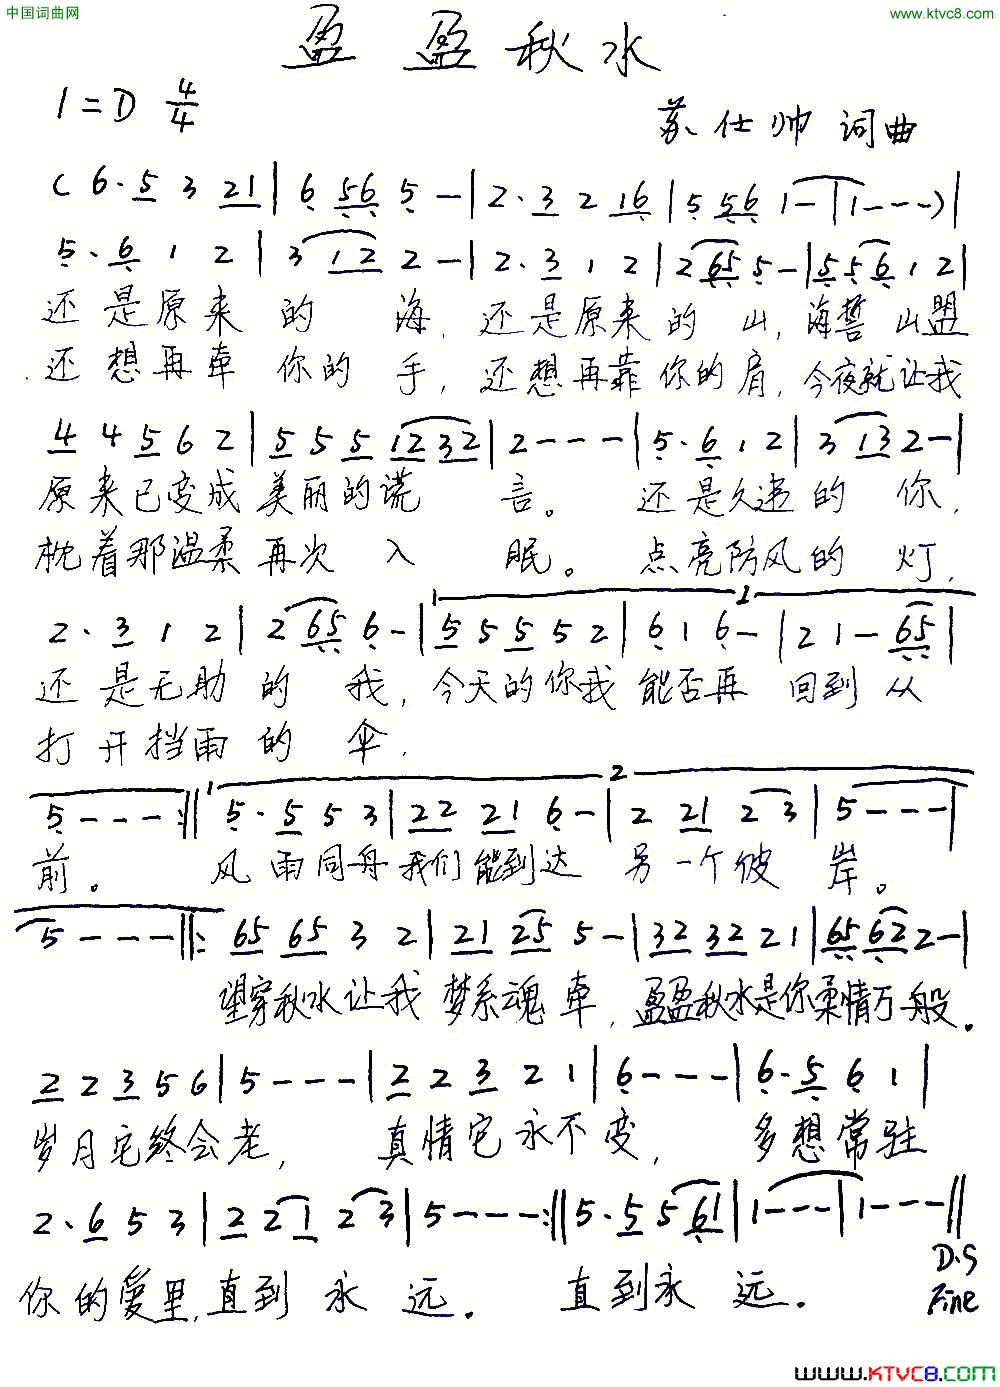 中国词曲网
www.ktvc8.com
盈盈秋水
1=D 4/4
苏仕帅 词曲
(6. 5 3 21|6 56 5 -|2. 3 2 16|5 56 1-|1---)|
5. 6 1 2|3 12 2 -|2. 3 1 2|2 65 5-|5 5 6 1 2|
还是原来的海,还是原来的山,海誓山盟
还想再牵你的手,还想再靠你的肩,今夜就让我
4 4 5 6 2|5 5 5 12 32|2---|5. 6 1 2|3 13 2-|
原来已变成美丽的谎言。还是久违的你,
枕着那温柔再次入眠。点亮防风的灯,
1 2
2. 3 1 2|2 65 6-|5 5 5 5 2|6 1 6-|2 1- 65|
还是无助的我,今天的你我能否再回到从
打开挡雨的伞.
1 2
5---:||5. 5 5 3|22 21 6-|2 21 2 3|5---|
前。风雨同舟我们能到达另一个彼岸。
5---||:65 65 3 2|21 25 5-|32 32 21|65 62 2-|
望穿秋水让我梦系魂牵,盈盈秋水是你柔情万般。
2 2 3 5 6|5---|2 2 3 2 1|6---|6. 5 6 1|
岁月它终会老,真情它永不变,多想常驻
2. 6 5 3|2 2 1 2 3|5---:||5. 5 5 61|1---|1---||
D.S
你的爱里,直到永远。直到永远。
Fine
www.KTVC8.com